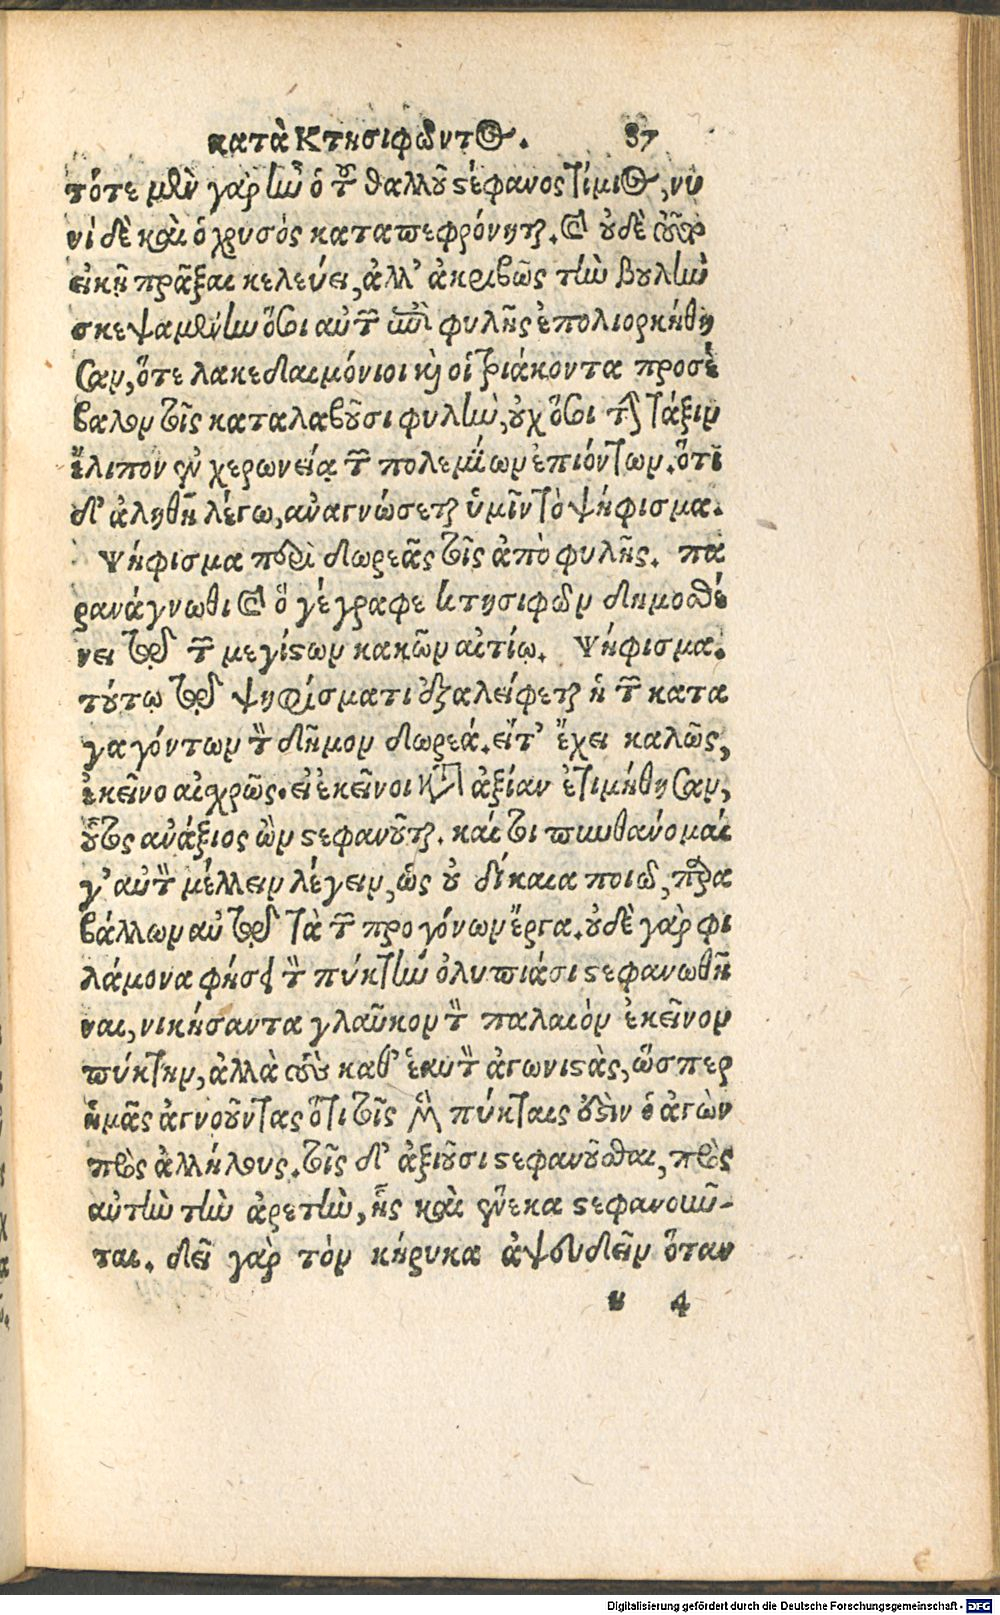 κατὰ Κτησιφῶντος. 87
τότε μὲν γὰρ ἦν ὁ τοῦ θαλλοῦ στέφανος τίμιος, νυ
νὶ δὲ καὶ ὁ χρυσός καταπεφρόνηται. καὶ οὐδὲ τοῦτο
εἰκῆ πρᾶξαι κελεύει, ἀλλ' ἀκριβῶς τὴν βουλὴν
σκεψαμένην ὅσοι αὐτῶν ἐπὶ φυλῆς ἐπολιορκήθη
σαν, ὅτε λακεδαιμόνιοι καὶ οἱ τριάκοντα προσέ
βαλον τοῖς καταλαβοῦσι φυλὴν, οὐχ ὅσοι τὴν τάξιν
ἔλιπον ἐν χερωνείᾳ τῶν πολεμίων ἐπιόντων. ὅτι
δ' ἀληθῆ λέγω, ἀναγνώσεται ὑμῖν τὸ ψήφισμα.
Ψήφισμα περὶ δωρεᾶς τοῖς ἀπὸ φυλῆς. πα
ρανάγνωθι καὶ ὃ γέγραφε κτησιφῶν δημοσθέ
νει τῷ τῶν μεγίστων κακῶν αἰτίῳ. Ψήφισμα.
τούτῳ τῷ ψηφίσματι ἐξαλείφεται ἡ τῶν κατα
γαγόντων τὸν δῆμον δωρεά. εἴτ' ἔχει καλῶς,
ἐκεῖνο αἰσχρῶς. εἰ ἐκεῖνοι κατ' ἀξίαν ἐτιμήθησαν,
οὗτος ἀνάξιος ὢν στεφανοῦται. καίτοι πυνθάνομαί
γ' αὐτὸν μέλλειν λέγειν, ὡς οὐ δίκαια ποιῶ, παρα
βάλλων αὐτῷ τὰ τῶν προγόνων ἔργα. οὐδὲ γὰρ φι
λάμονα φήσει τὸν πύκτην ὀλυπιάσι στεφανωθῆ
ναι, νικήσαντα γλαῦκον τὸν παλαιὸν ἐκεῖνον
πύκτην, ἀλλὰ τοὺς καθ' ἑαυτὸν ἀγωνιστὰς, ὥσπερ
ἡμᾶς ἀγνοοῦντας ὅτι τοῖς μὲν πύκταις ἐστὶν ὁ ἀγὼν
πρὸς ἀλλήλους. τοῖς δ' ἀξιοῦσι στεφανοῦσθαι, πρὸς
αὐτὴν τὴν ἀρετὴν, ἧς καὶ ἕνεκα στεφανοῦν-
ται. δεῖ γὰρ τὸν κήρυκα ἀψευδεῖν ὅταν
4
Digitalisierung gefördert durch die Deutsche Forschungsgemeinschaft - DFG